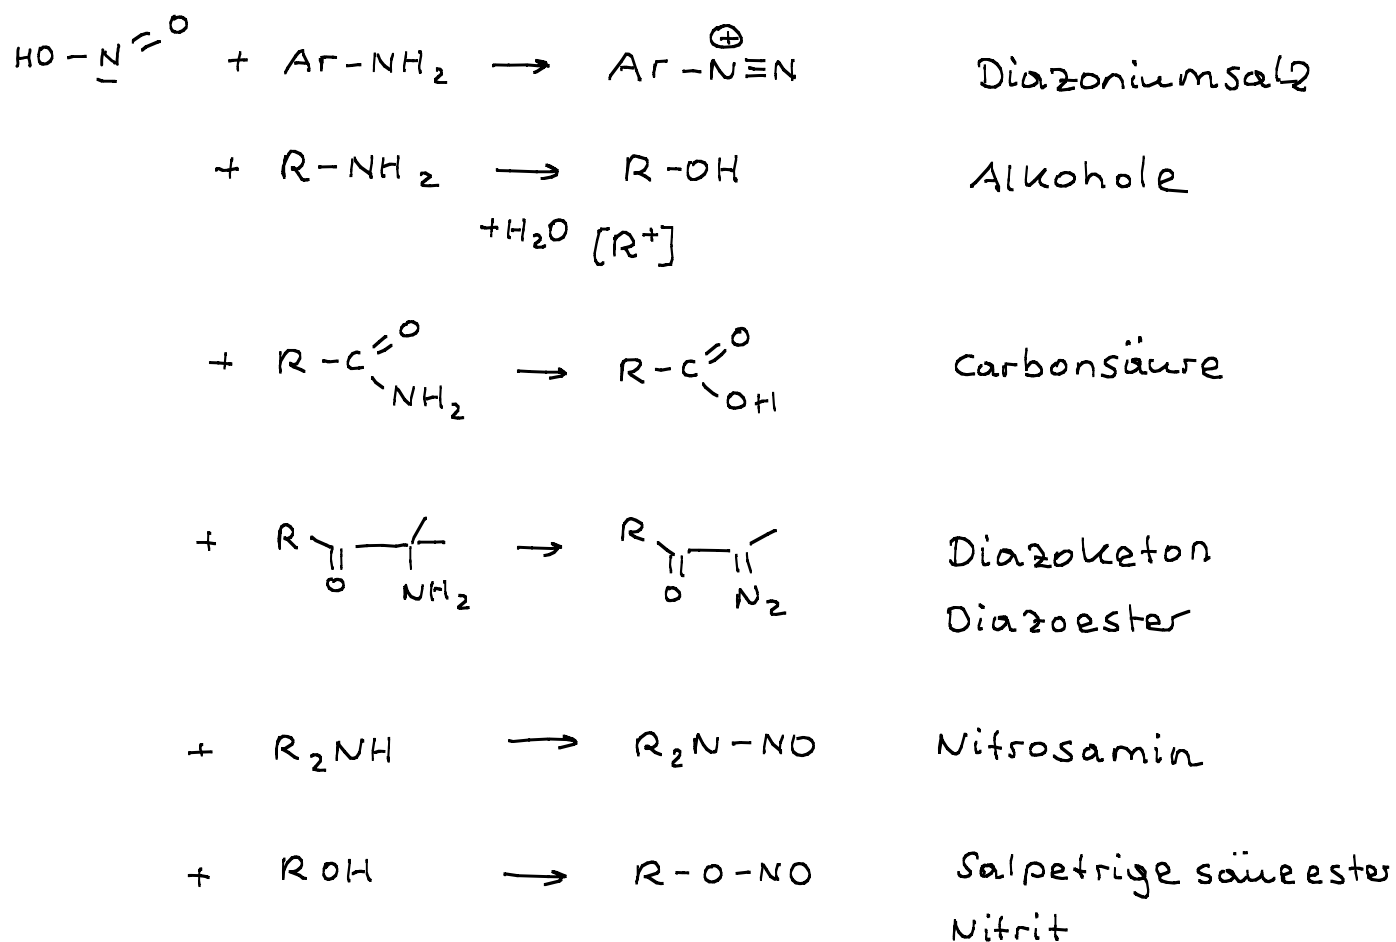 HO-N=O + Ar-NH2 → Ar-N⊕≡N Diazoniumsalz
+ R-NH2 → R-OH Alkohole
+H2O [R+]
+ R-C=O NH2 → R-C=O OH Carbonsäure
+ R O NH2 → R O N2 Diazoketon
Diazoester
+ R2NH → R2N-NO Nitrosamin
+ ROH → R-O-NO Salpetrigesäueester
Nitrit